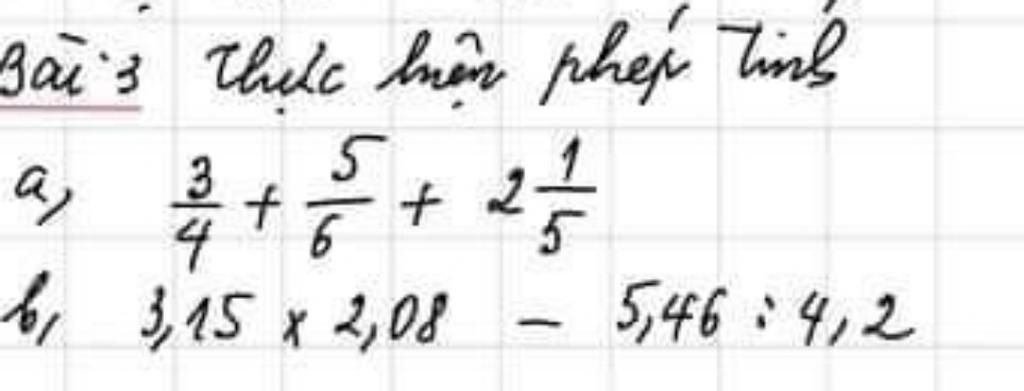 Bài 3 Thực hiện phép tính
a, 3/4 + 5/6 + 2 1/5
b, 3,15 x 2,08 - 5,46 : 4,2